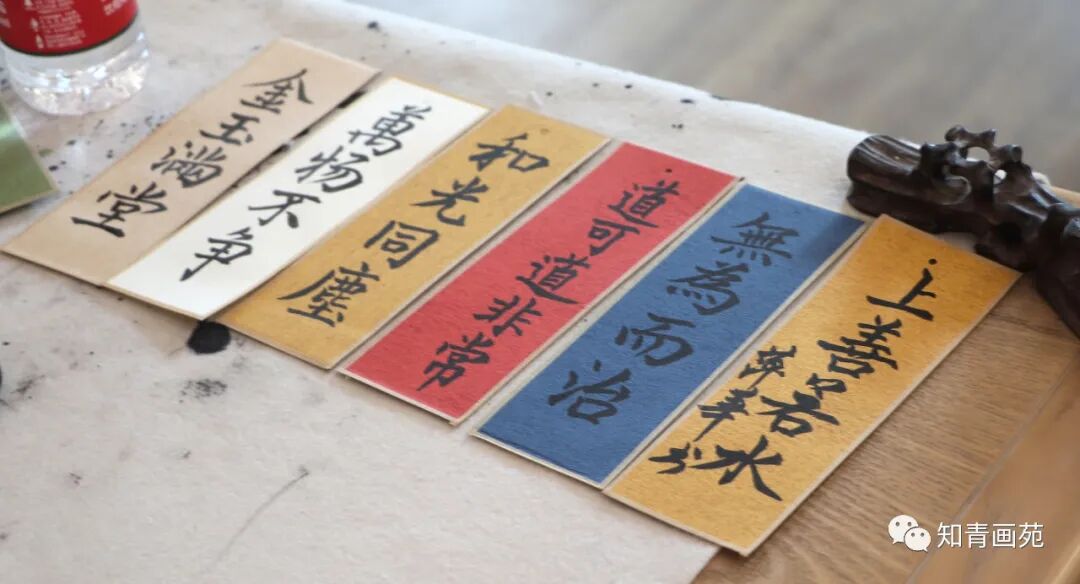 上善若水
书
無為而治
道可道非常
和光同塵
萬物不争
金玉滿堂
知青画苑